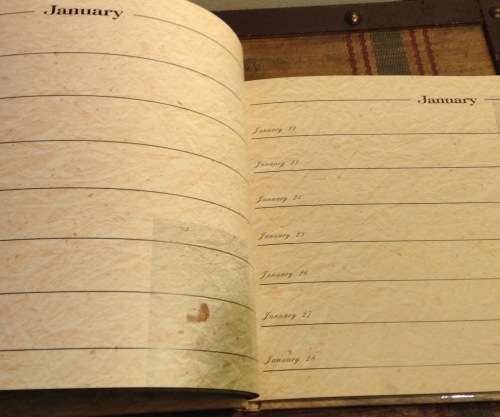 January
January
January 22
January 23
January 24
January 25
January 26
January 27
January 28